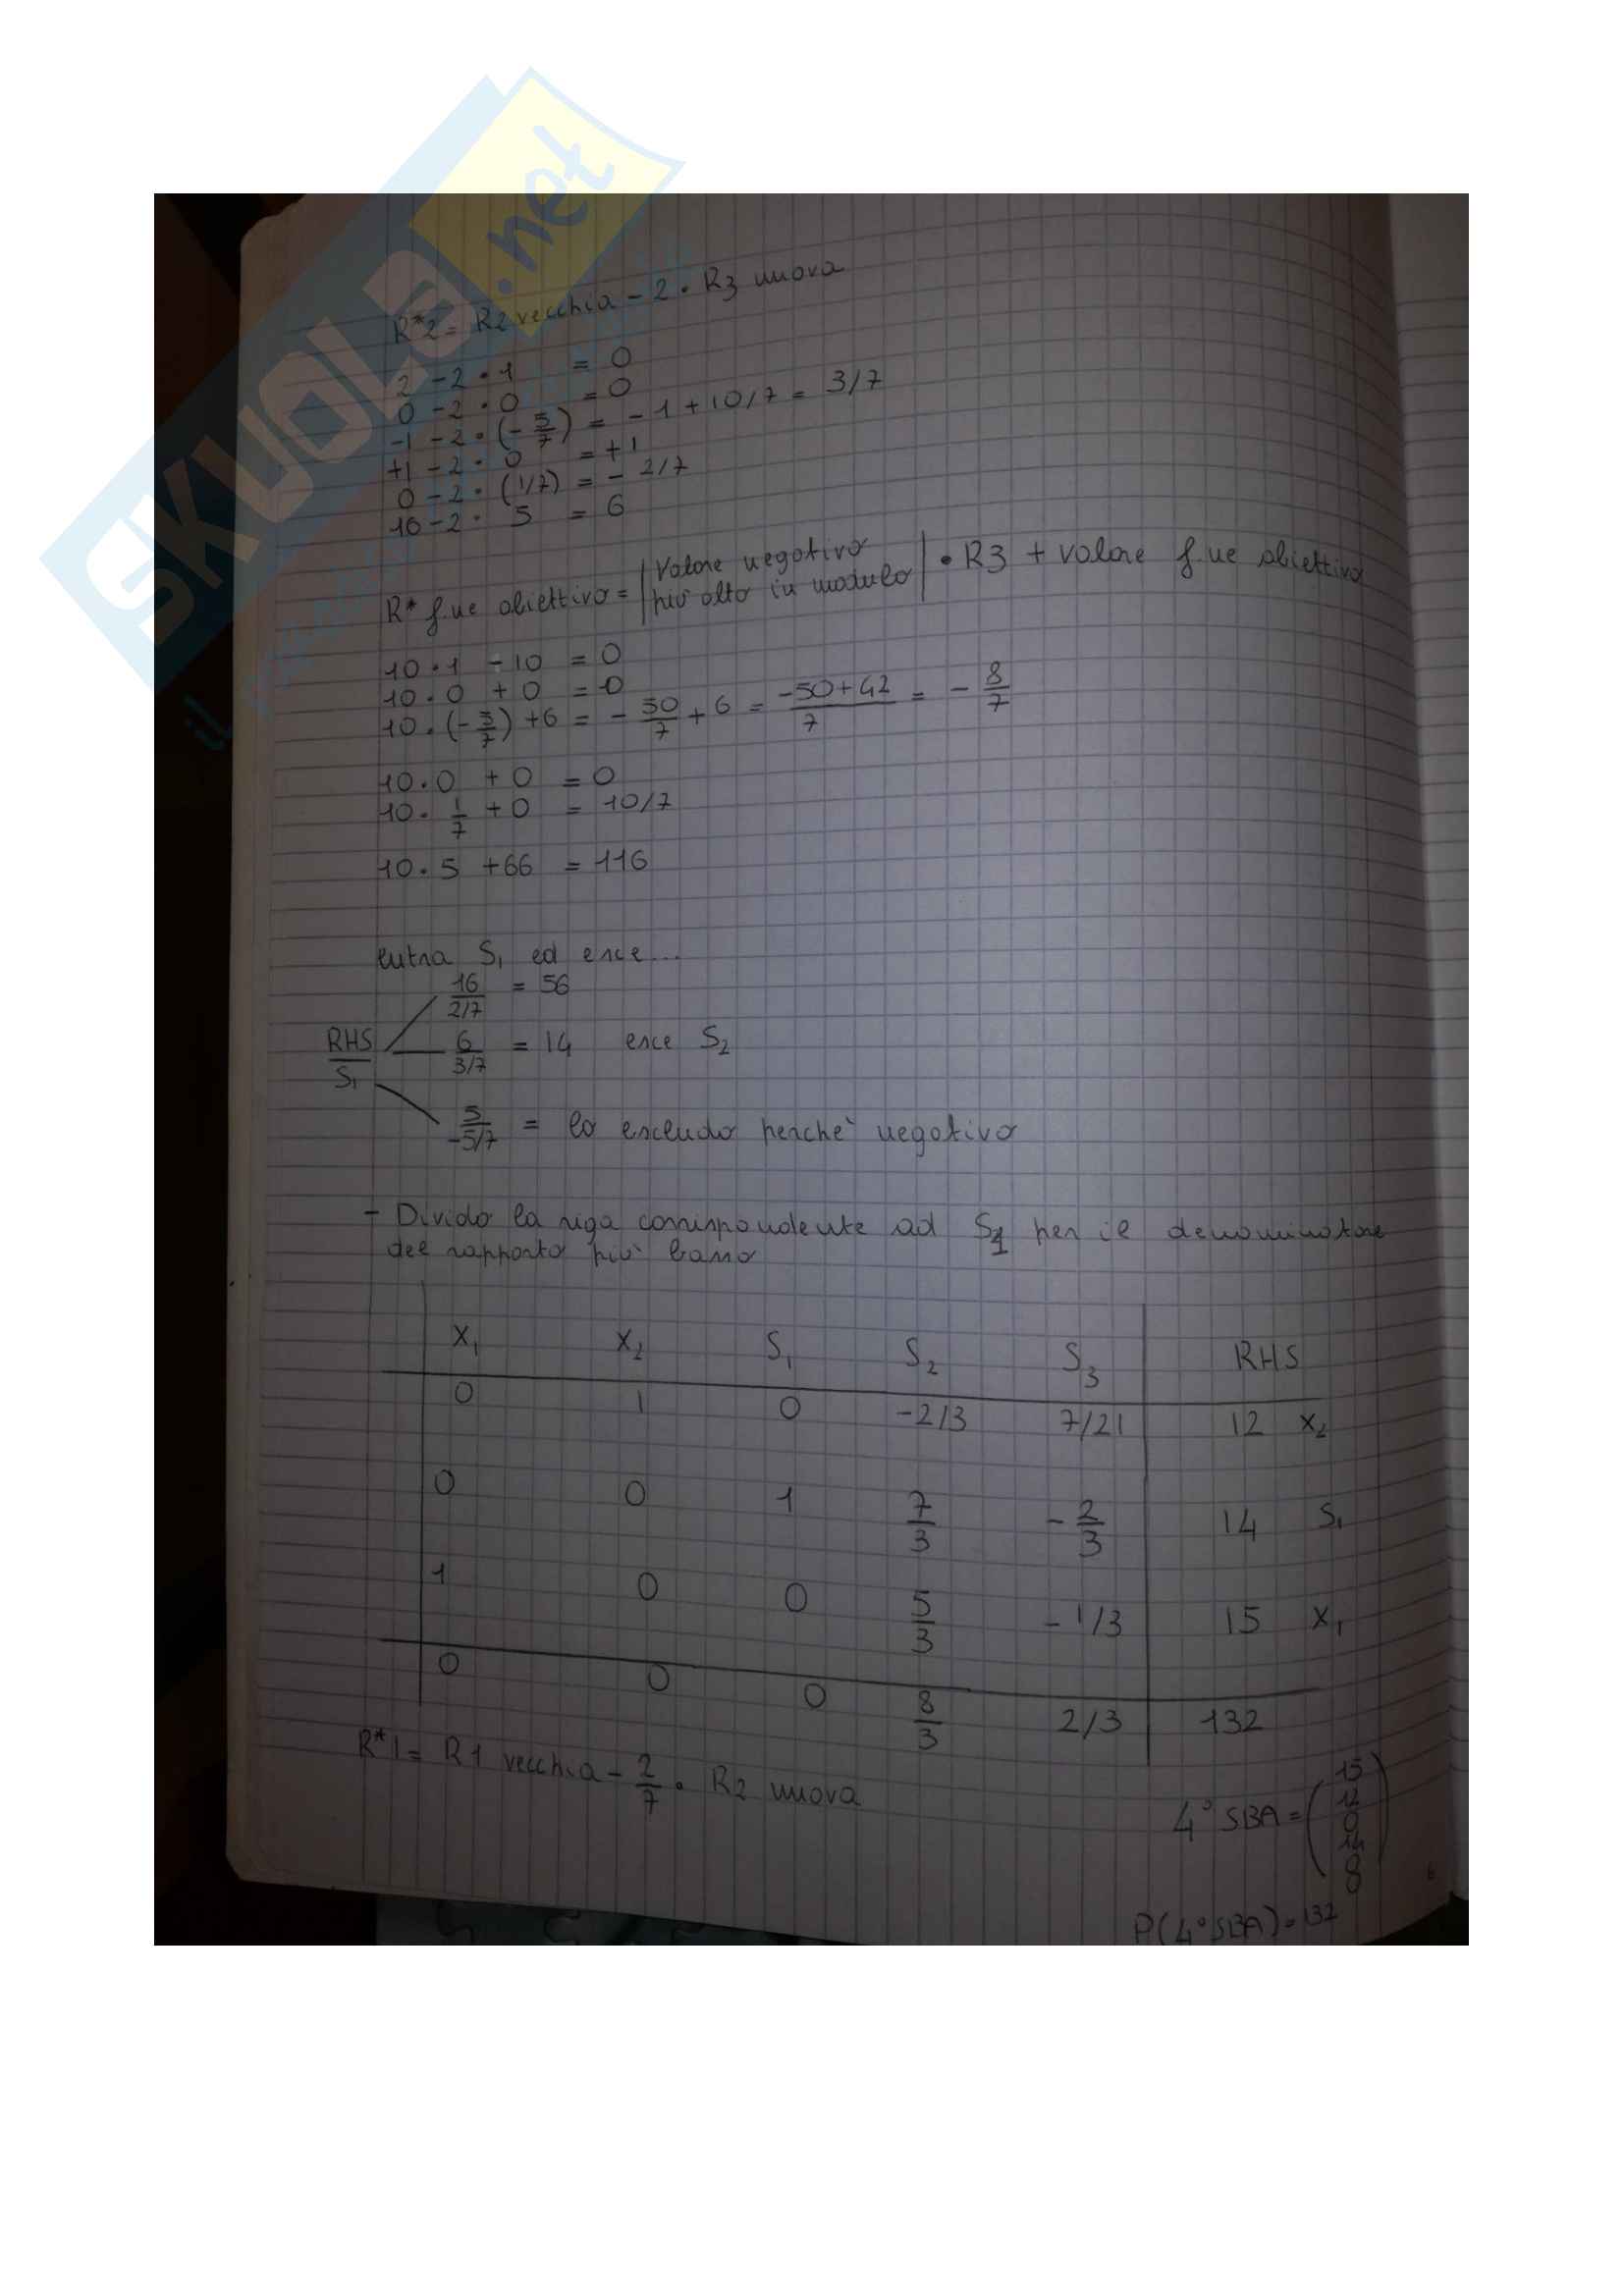 SKUOLa.net
R*2 = R2 vecchia - 2 • R3 nuova
2 - 2 • 1 = 0
0 - 2 • 0 = 0
-1 - 2 • (-5/7) = -1 + 10/7 = 3/7
+1 - 2 • 0 = +1
0 - 2 • (1/7) = - 2/7
16 - 2 • 5 = 6
R* f.ne obiettivo = |Valore negativo più alto in modulo| • R3 + valore f.ne obiettivo
10 • 1 - 10 = 0
10 • 0 + 0 = 0
10 • (-5/7) + 6 = - 50/7 + 6 = (-50+42)/7 = - 8/7
10 • 0 + 0 = 0
10 • 1/7 + 0 = 10/7
10 • 5 + 66 = 116
entra S1 ed esce...
16/(2/7) = 56
RHS/S1
6/(3/7) = 14 esce S2
5/(-5/7) = lo escludo perchè negativo
- Divido la riga corrispondente ad S1 per il denominatore
del rapporto più basso
X1 X2 S1 S2 S3 RHS
0 1 0 -2/3 7/21 12 X2
0 0 1 7/3 -2/3 14 S1
1 0 0 5/3 -1/3 15 X1
0 0 0 8/3 2/3 132
R*1 = R1 vecchia - 2/7 • R2 nuova
4° SBA = (15 12 0 14 8)
P(4°SBA) = 132